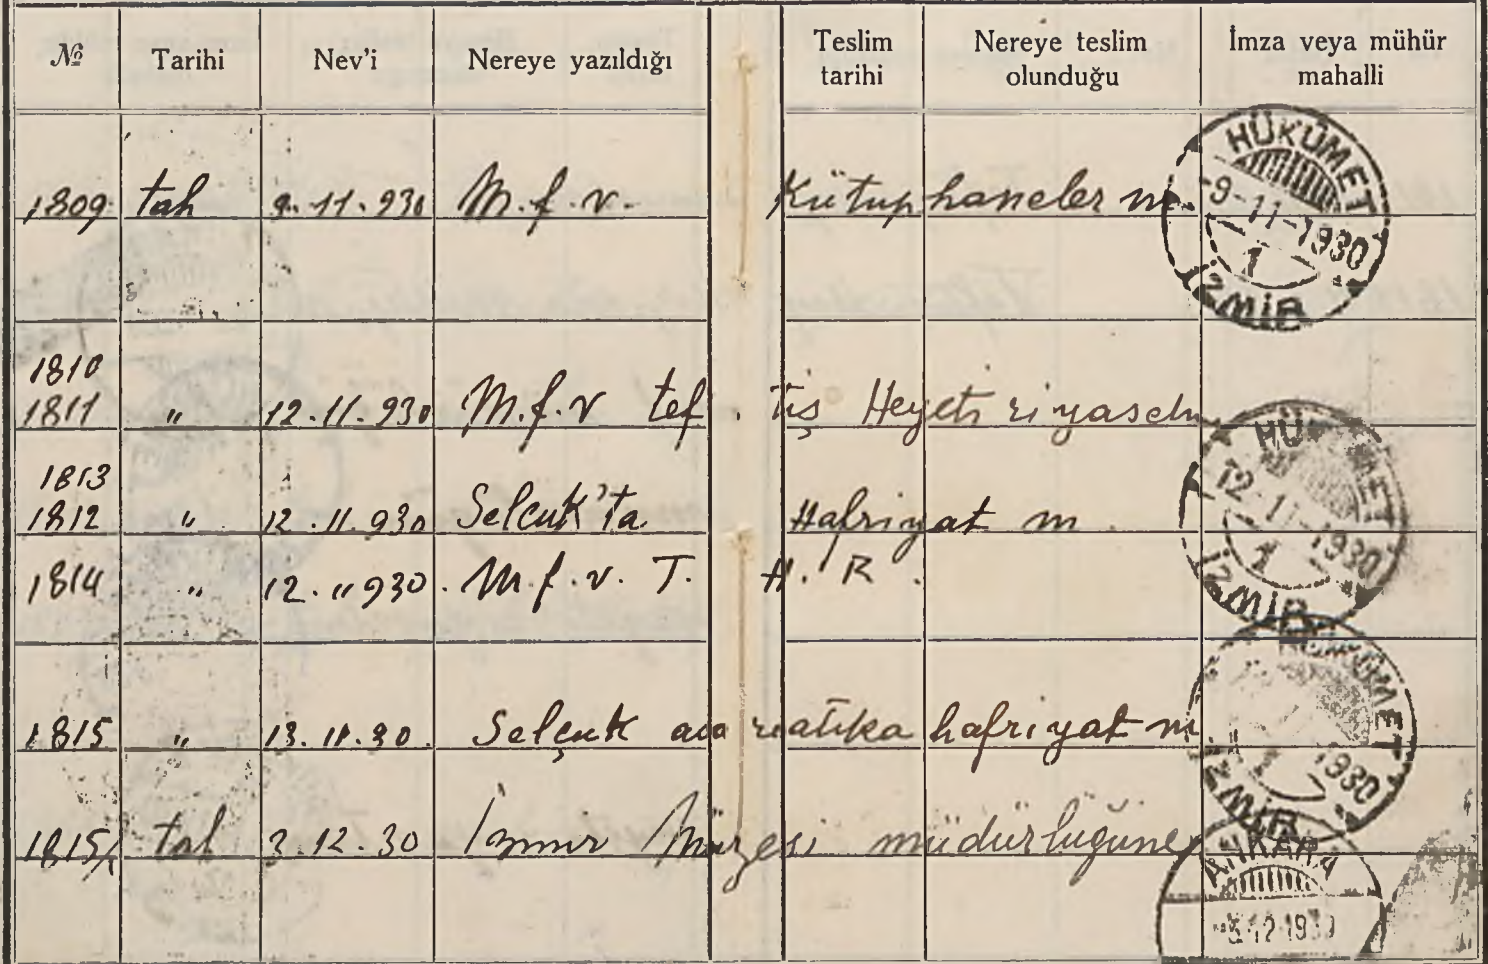 № Tarihi Nev'i Nereye yazıldığı Teslim tarihi Nereye teslim olunduğu İmza veya mühür mahalli
1809 tah 9.11.930 M.f.v. Kütuphaneler m.
HÜKÛMET
-9-11-1930
1
İZMİR
1810
1811 " 12.11.930 M.f.v tef.tiş Heyeti riyaseti
1813
1812 " 12.11.930 Selcuk'ta Hafriyat m.
HÜKÛMET
12-11-1930
1
İZMİR
1814 " 12.11 930. M.f.v. T. H. R.
1815 " 13.11.30. Selçuk hafriyat m
HÜKÛMET
1930
1
İZMİR
1815/1 tah 3.12.30 İzmir Müzesi müdürlüğüne
ANKARA
-5-12-1930